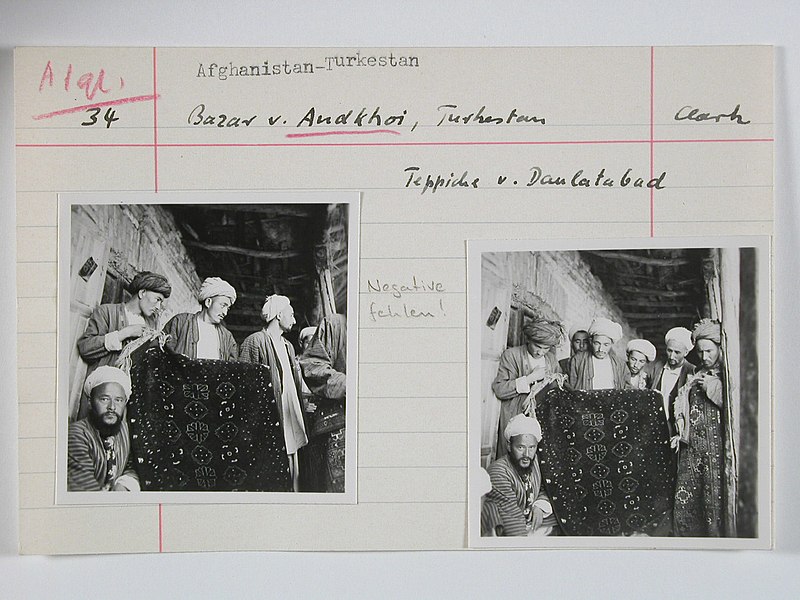 Afgh.
Afghanistan-Turkestan
34
Bazar v. Andkhoi, Turkestan
Clark
Teppiche v. Daulatabad
Negative
fehlen!